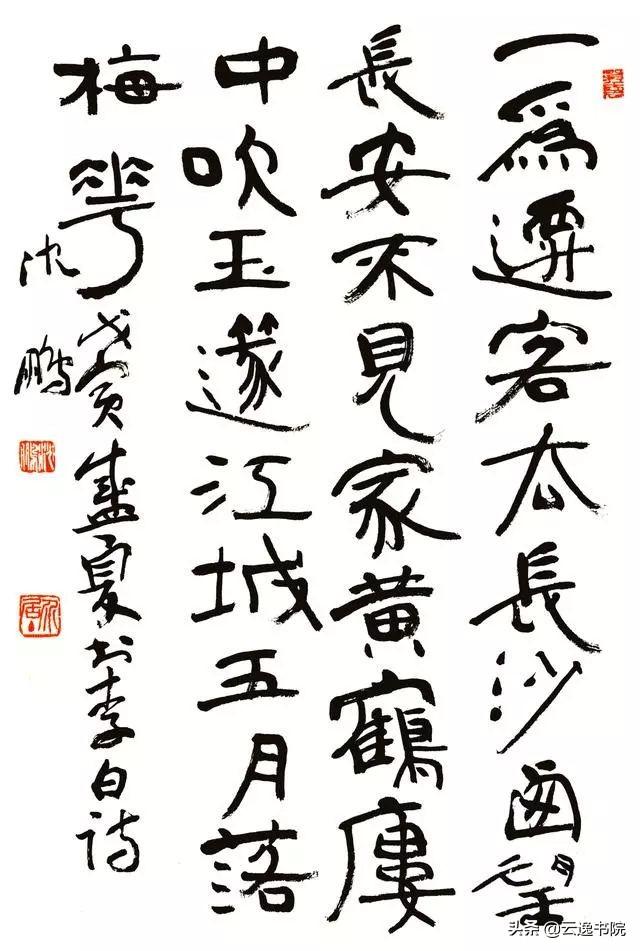 一爲遷客去長沙西望
長安不見家黃鶴廔
中吹玉篴江城五月落
梅花戊寅盛夏书李白詩
沈鵬
头条@云逸书院